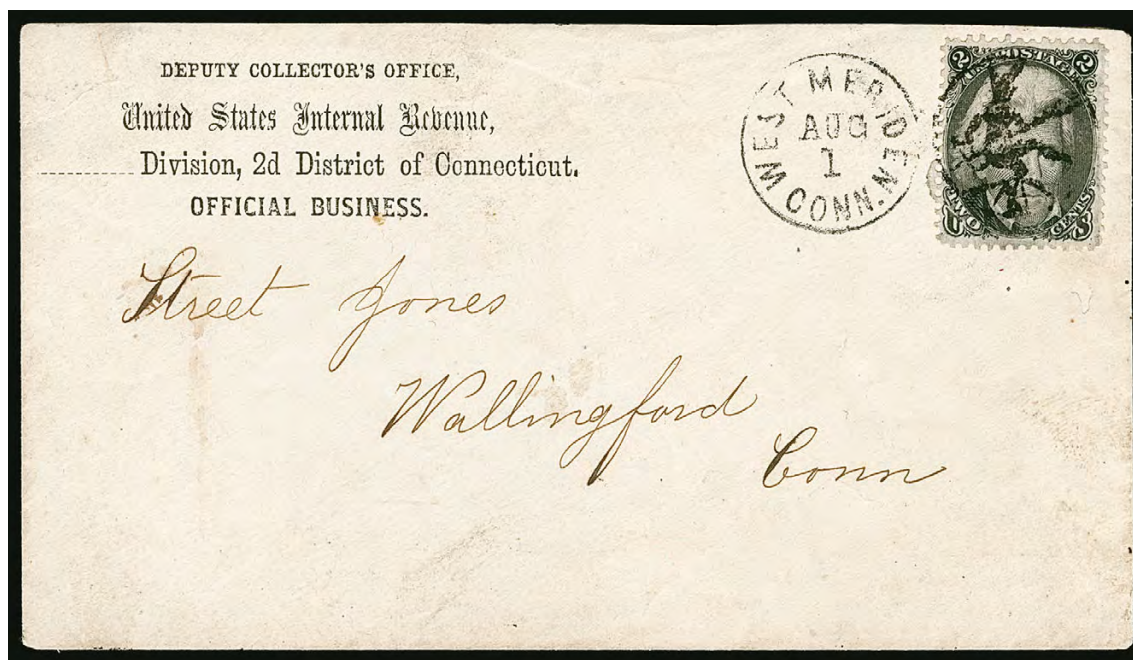 DEPUTY COLLECTOR'S OFFICE,
United States Internal Revenue,
Division, 2d District of Connecticut.
OFFICIAL BUSINESS.
WEST MERIDEN
AUG
1
CONN.
2 U.S. POSTAGE 2
U TWO CENTS S
Street Jones
Wallingford
Conn